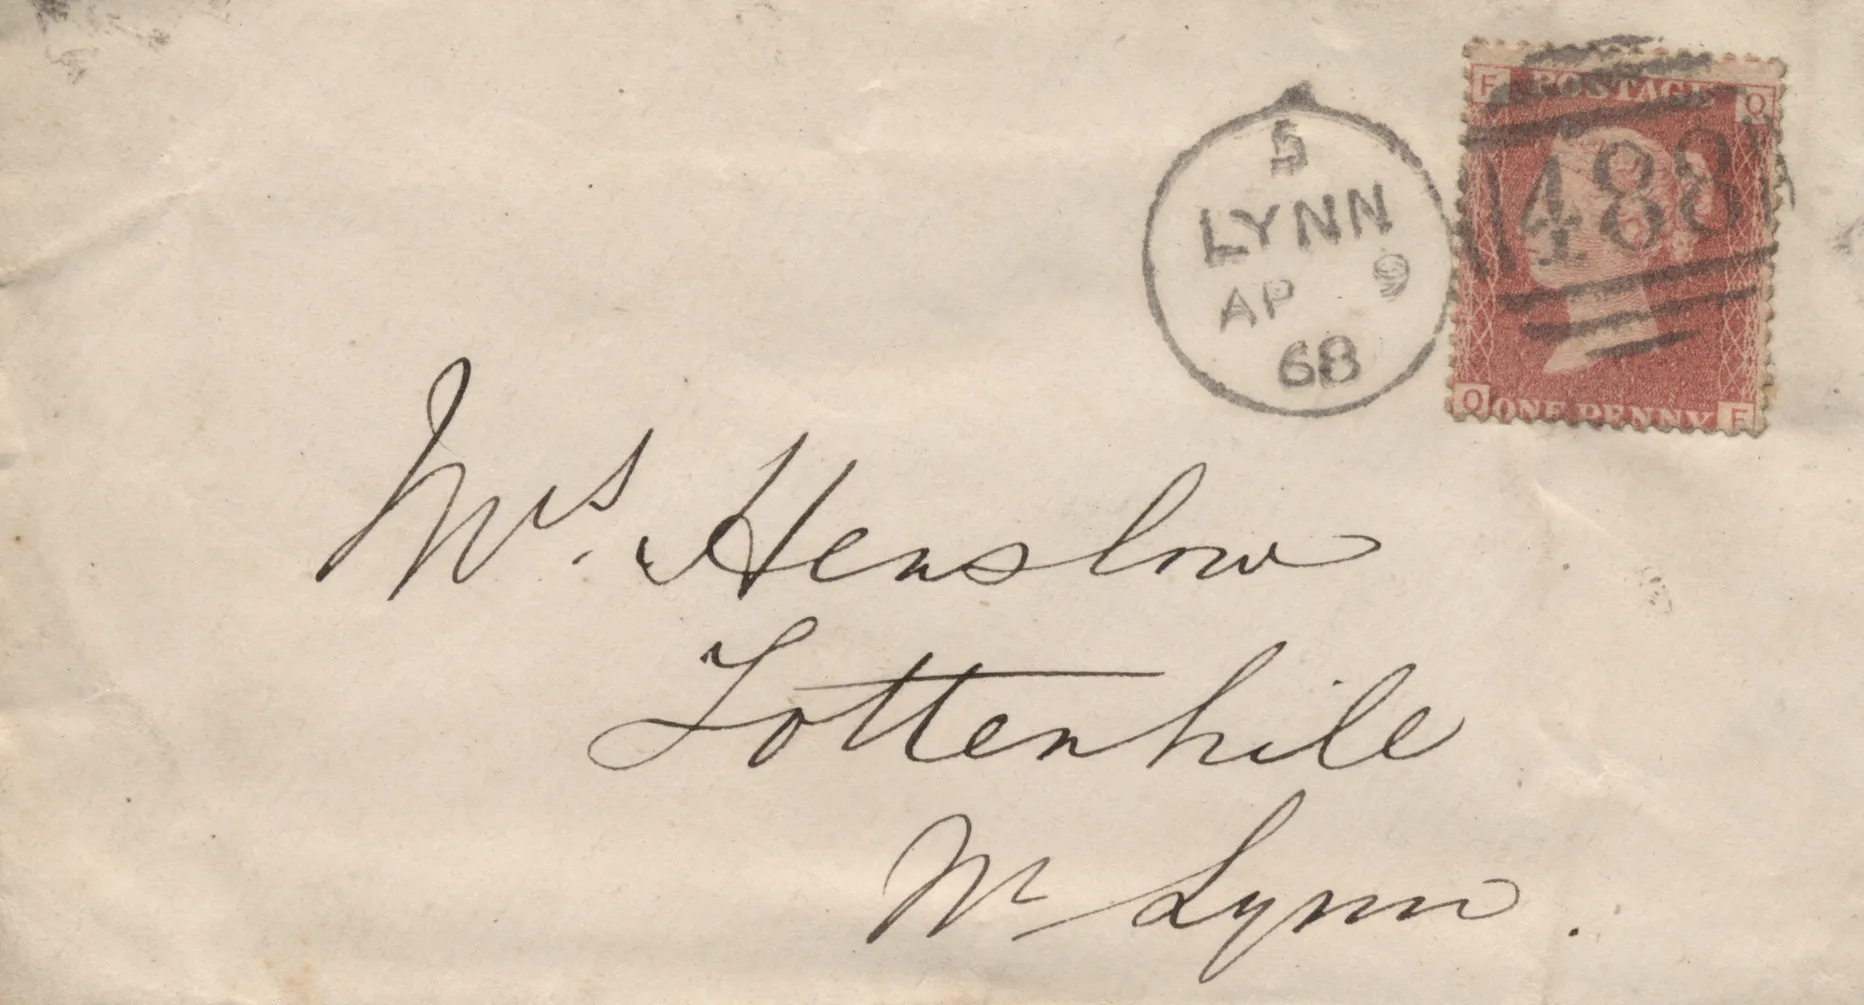 F POSTAGE Q
488
Q ONE PENNY F
5
LYNN
AP 9
68
Mrs. Henslow
Tottenhile
Nr Lynn.